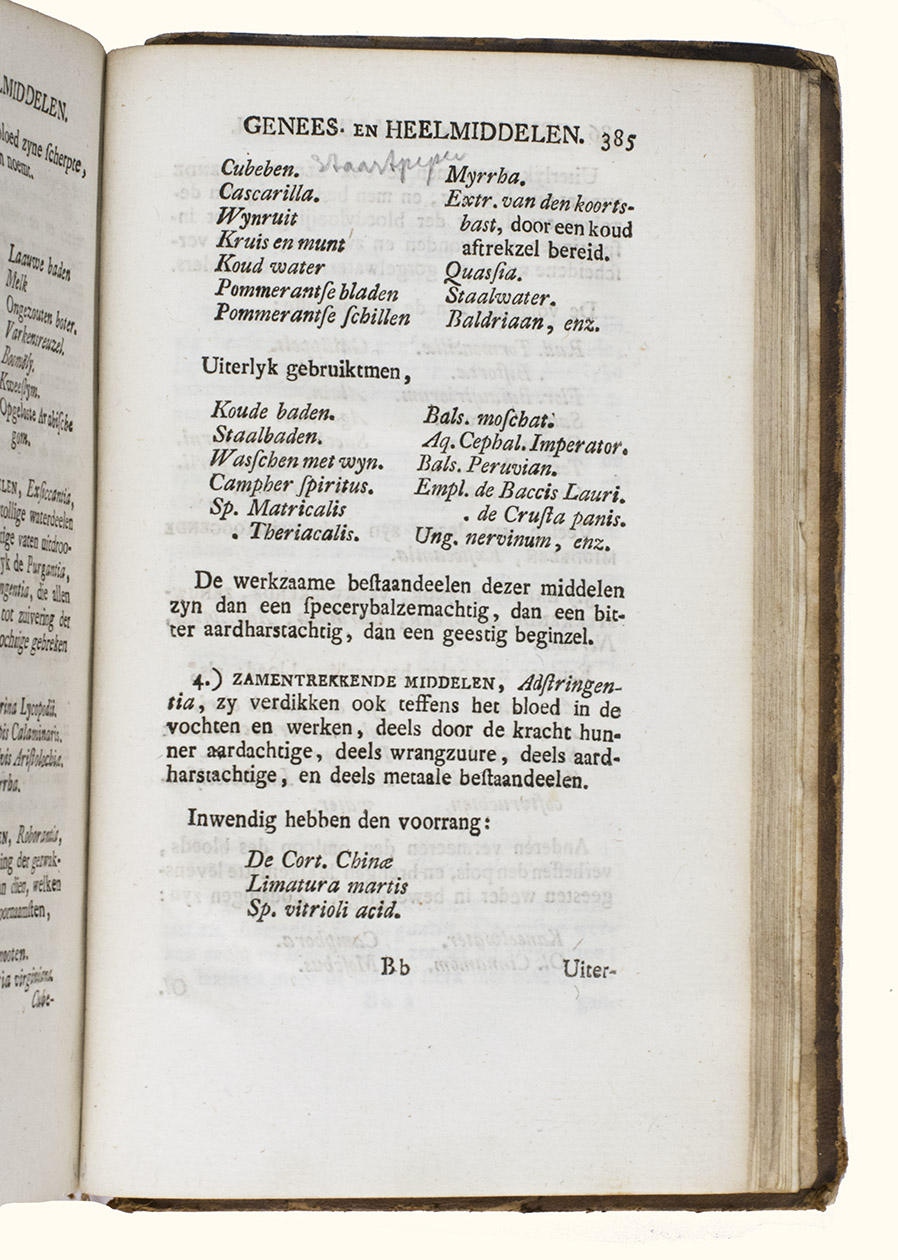 LMIDDELEN.
bloed zyne ſcherpte,
noemt.
Laauwe baden
Melk
Ongezouten boter.
Varkensreuzel.
Boomöly.
Kweeſlym.
Opgeloste Arabiſche
gom.
LEN, Exſiccantia,
tollige waterdeelen
tige vaten uitdroo-
yk de Purgantia,
ngentia, die allen
tot zuivering der
ochtige gebreken
rina Lycopodii.
pis Calaminaris.
dvis Ariſtolochiæ.
rrha.
EN, Roborantia,
ing der gezwak-
n dien, welken
oornaamſten,
rooten.
ria virginiana.
Cube-
GENEES- EN HEELMIDDELEN. 385
Cubeben. Staartpeper
Cascarilla.
Wynruit
Kruis en munt
Koud water
Pommerantſe bladen
Pommerantſe ſchillen
Myrrha.
Extr. van den koorts-
baſt, door een koud
aftrekzel bereid.
Quaſſia.
Staalwater.
Baldriaan, enz.
Uiterlyk gebruiktmen,
Koude baden.
Staalbaden.
Wasſchen met wyn.
Campher ſpiritus.
Sp. Matricalis
. Theriacalis.
Bals. moſchat.
Aq. Cephal. Imperator.
Bals. Peruvian.
Empl. de Baccis Lauri.
. de Cruſta panis.
Ung. nervinum, enz.
De werkzaame beſtaandeelen dezer middelen
zyn dan een ſpecerybalzemachtig, dan een bit-
ter aardharstachtig, dan een geestig beginzel.
4.) ZAMENTREKKENDE MIDDELEN, Adſtringen-
tia, zy verdikken ook teffens het bloed in de
vochten en werken, deels door de kracht hun-
ner aardachtige, deels wrangzuure, deels aard-
harstachtige, en deels metaale beſtaandeelen.
Inwendig hebben den voorrang:
De Cort. Chinæ
Limatura martis
Sp. vitrioli acid.
Bb
Uiter-